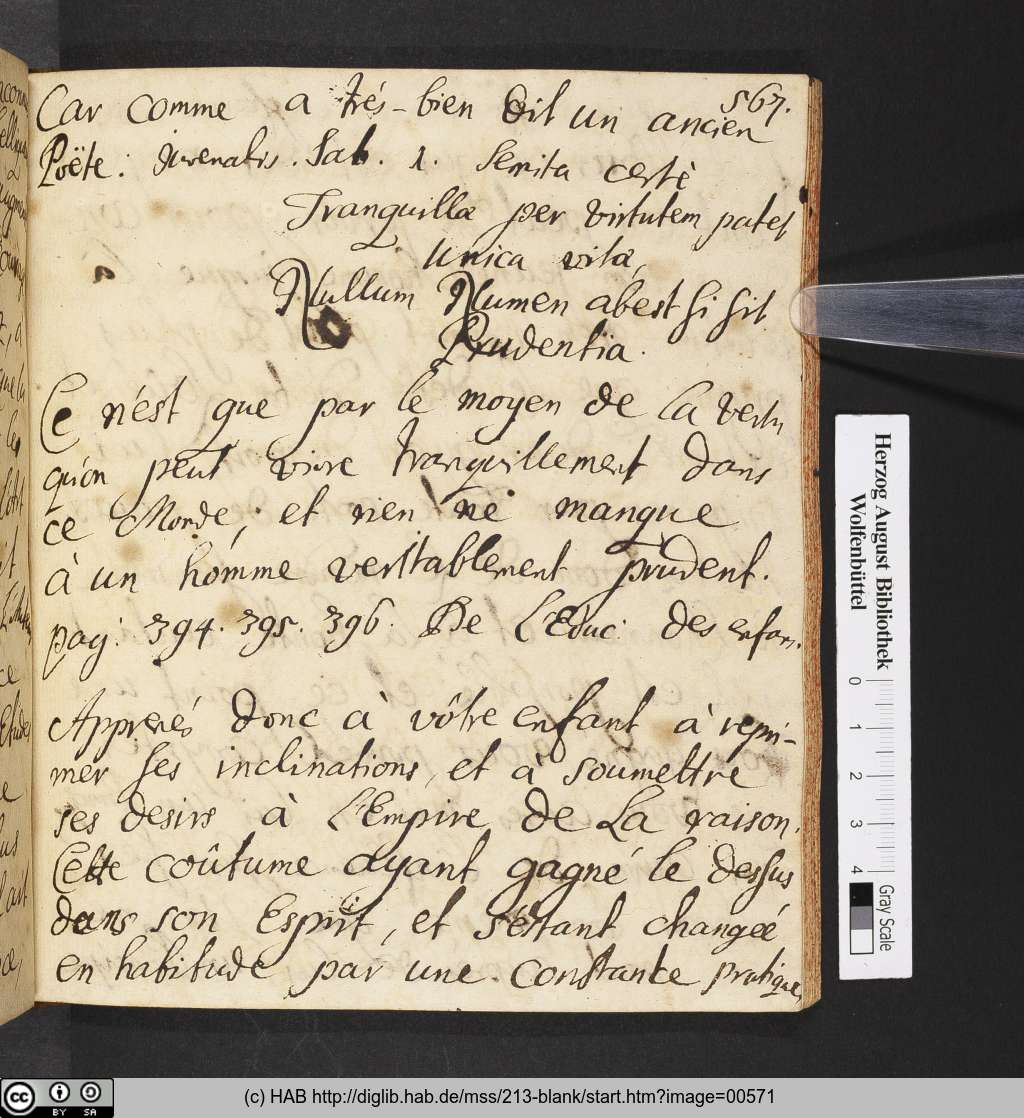 567.
Car comme a trés-bien dit un ancien
Poëte: Juvenalis. Sat. 1. Semita certè
Tranquillæ per virtutem patet
unica vitæ,
Nullum Numen abest si sit
Prudentia.
Ce n'est que par le moyen de la vertu
qu'on peut vivre tranquillement dans
ce Monde; et rien ne manque
à un hómme veritablement prudent.
pag: 394. 395. 396. De L'Educ: des enfan.
Apprenés donc à vôtre enfant à repri-
mer ses inclinations, et à soumettre
ses desirs à L'Empire de La raison.
Cette coûtume ayant gagné le dessus
dans son Esprit, et s'étant changée
en habitude par une constante pratique,
Herzog August Bibliothek
Wolfenbüttel
0 1 2 3 4
Gray Scale
cc BY SA
(c) HAB http://diglib.hab.de/mss/213-blank/start.htm?image=00571